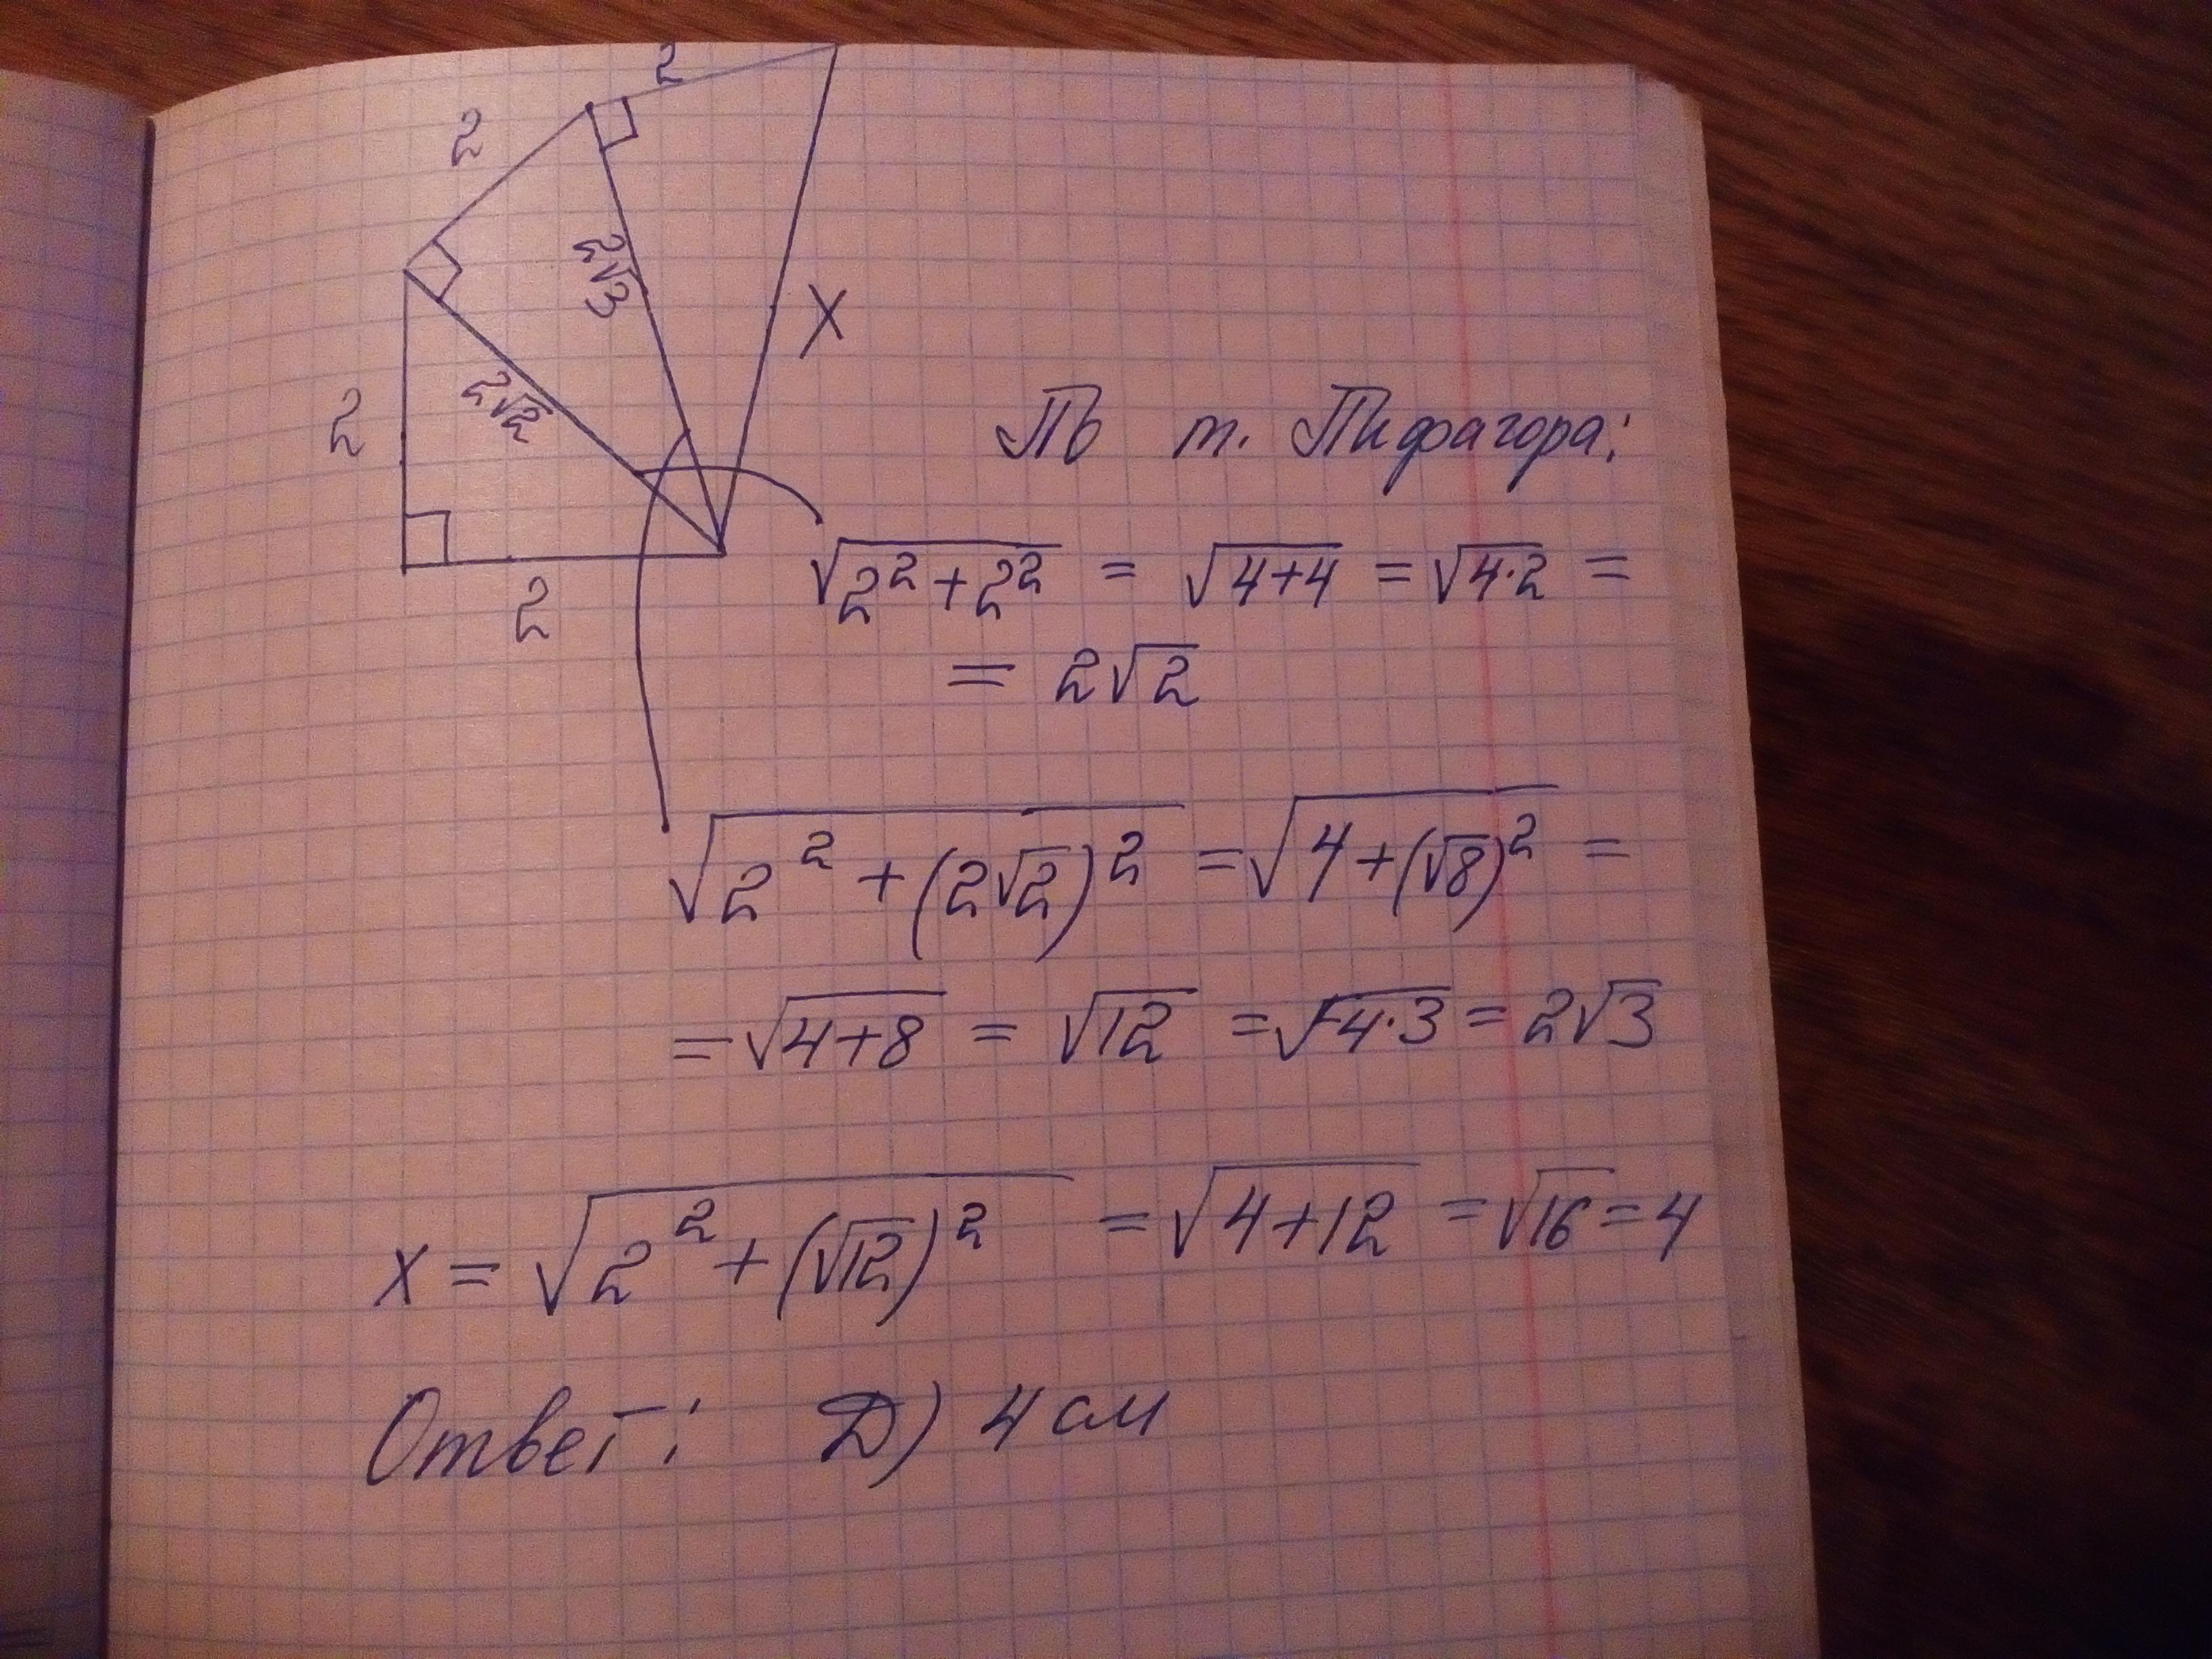 2
2
2√3
X
2√2
2
2
По т. Пифагора:
√(2² + 2²) = √(4+4) = √(4·2) =
= 2√2
√(2² + (2√2)²) = √(4 + (√8)²) =
= √(4+8) = √12 = √(4·3) = 2√3
x = √(2² + (√12)²) = √(4+12) = √16 = 4
Ответ: Д) 4 см